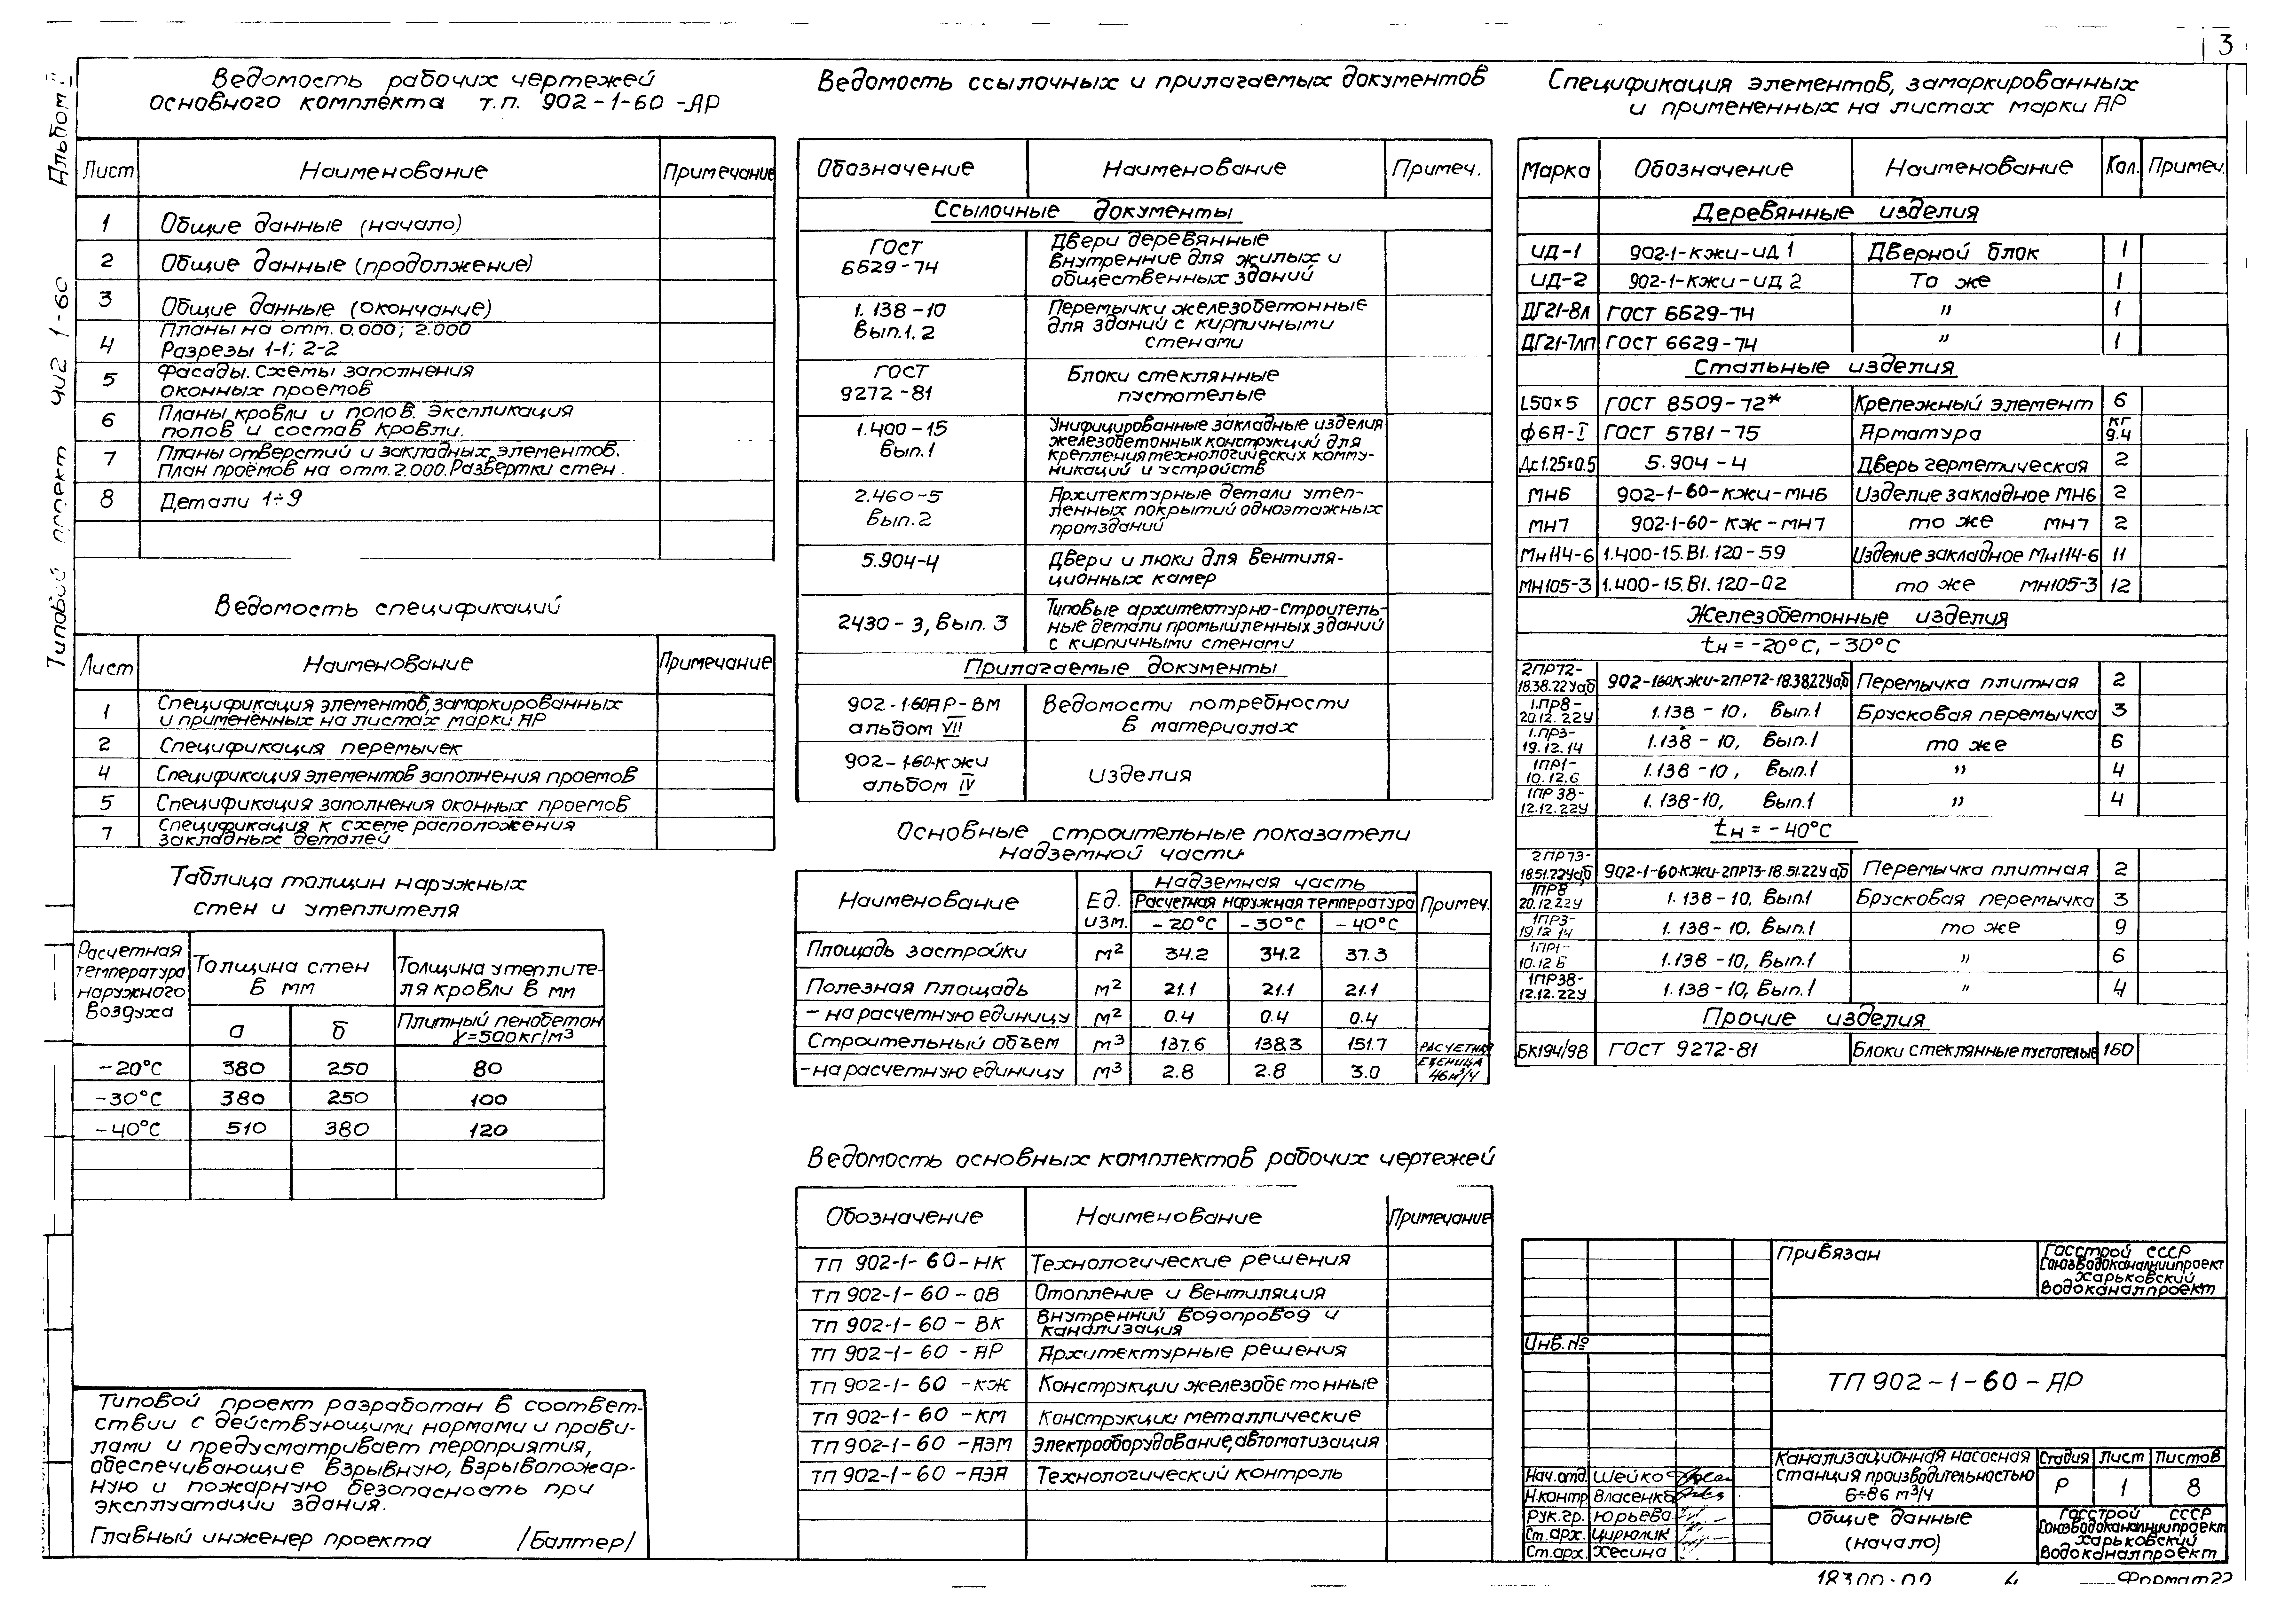 3
Альбом II
Типовой проект 902-1-60
Ведомость рабочих чертежей
основного комплекта т.п. 902-1-60-АР
Лист Наименование Примечание
1 Общие данные (начало)
2 Общие данные (продолжение)
3 Общие данные (окончание)
4 Планы на отм. 0.000; 2.000
Разрезы 1-1; 2-2
5 Фасады. Схемы заполнения
оконных проемов
6 Планы кровли и полов. Экспликация
полов и состав кровли.
7 Планы отверстий и закладных элементов.
План проёмов на отм. 2.000. Развертки стен.
8 Детали 1÷9
Ведомость спецификаций
Лист Наименование Примечание
1 Спецификация элементов, замаркированных
и применённых на листах марки АР
2 Спецификация перемычек
4 Спецификация элементов заполнения проемов
5 Спецификация заполнения оконных проемов
7 Спецификация к схеме расположения
закладных деталей
Таблица толщин наружных
стен и утеплителя
Расчетная
температура
наружного
воздуха
Толщина стен
в мм
Толщина утеплите-
ля кровли в мм
а б
Плитный пенобетон
γ=500кг/м³
-20°С 380 250 80
-30°С 380 250 100
-40°С 510 380 120
Типовой проект разработан в соответ-
ствии с действующими нормами и прави-
лами и предусматривает мероприятия,
обеспечивающие взрывную, взрывопожар-
ную и пожарную безопасность при
эксплуатации здания.
Главный инженер проекта /Балтер/
Ведомость ссылочных и прилагаемых документов
Обозначение Наименование Примеч.
Ссылочные документы
ГОСТ
6629-74
Двери деревянные
внутренние для жилых и
общественных зданий
1.138-10
Вып.1.2
Перемычки железобетонные
для зданий с кирпичными
стенами
ГОСТ
9272-81
Блоки стеклянные
пустотелые
1.400-15
Вып.1
Унифицированные закладные изделия
железобетонных конструкций для
крепления технологических комму-
никаций и устройств
2.460-5
Вып.2
Архитектурные детали утеп-
ленных покрытий одноэтажных
промзданий
5.904-4
Двери и люки для вентиля-
ционных камер
2430-3, Вып. 3
Типовые архитектурно-строитель-
ные детали промышленных зданий
с кирпичными стенами
Прилагаемые документы
902-1-60АР-ВМ
альбом VII
Ведомости потребности
в материалах
902-1-60-КЖИ
альбом IV
Изделия
Основные строительные показатели
надземной части
Наименование Ед. изм. Надземная часть Примеч.
Расчетная наружная температура
-20°С -30°С -40°С
Площадь застройки м² 34.2 34.2 37.3
Полезная площадь м² 21.1 21.1 21.1
- на расчетную единицу м² 0.4 0.4 0.4
Строительный объем м³ 137.6 138.3 151.7
- на расчетную единицу м³ 2.8 2.8 3.0
Расчетная
единица
46м³/ч
Ведомость основных комплектов рабочих чертежей
Обозначение Наименование Примечание
ТП 902-1-60-НК Технологические решения
ТП 902-1-60-ОВ Отопление и вентиляция
ТП 902-1-60-ВК Внутренний водопровод и
канализация
ТП 902-1-60-АР Архитектурные решения
ТП 902-1-60-КЖ Конструкции железобетонные
ТП 902-1-60-КМ Конструкции металлические
ТП 902-1-60-АЭМ Электрооборудование, автоматизация
ТП 902-1-60-АЭА Технологический контроль
Спецификация элементов, замаркированных
и примененных на листах марки АР
Марка Обозначение Наименование Кол. Примеч.
Деревянные изделия
ИД-1 902-1-КЖИ-ИД 1 Дверной блок 1
ИД-2 902-1-КЖИ-ИД 2 То же 1
ДГ21-8л ГОСТ 6629-74 " 1
ДГ21-7лп ГОСТ 6629-74 " 1
Стальные изделия
L50×5 ГОСТ 8509-72* Крепежный элемент 6
ф6А-I ГОСТ 5781-75 Арматура кг 9.4
Дс1.25×0.5 5.904-4 Дверь герметическая 2
МН6 902-1-60-КЖИ-МН6 Изделие закладное МН6 2
МН7 902-1-60-КЖ-МН7 то же МН7 2
МН114-6 1.400-15.В1.120-59 Изделие закладное МН114-6 11
МН105-3 1.400-15.В1.120-02 то же МН105-3 12
Железобетонные изделия
tн = -20°С, -30°С
2ПР72-
18.38.22Уа,б 902-1-60КЖИ-2ПР72-18.38.22Уа,б Перемычка плитная 2
1.ПР8-
20.12.22У 1.138-10, Вып.1 Брусковая перемычка 3
1.ПР3-
19.12.14 1.138-10, Вып.1 то же 6
1ПР1-
10.12.6 1.138-10, Вып.1 " 4
1ПР38-
12.12.22У 1.138-10, Вып.1 " 4
tн = -40°С
2ПР73-
18.51.22Уа,б 902-1-60-КЖИ-2ПР73-18.51.22Уа,б Перемычка плитная 2
1ПР8
20.12.22У 1.138-10, Вып.1 Брусковая перемычка 3
1ПР3-
19.12.14 1.138-10, Вып.1 то же 9
1ПР1-
10.12.6 1.138-10, Вып.1 " 6
1ПР38-
12.12.22У 1.138-10, Вып.1 " 4
Прочие изделия
БК194/98 ГОСТ 9272-81 Блоки стеклянные пустотелые 160
Привязан
Госстрой СССР
Союзводоканалниипроект
Харьковский
Водоканалпроект
Инв.№
ТП 902-1-60-АР
Нач.отд. Шейко
Н.контр. Власенко
Рук.гр. Юрьева
Ст.арх. Цирюлик
Ст.арх. Хесина
Канализационная насосная
станция производительностью
6÷86 м³/ч
Стадия Лист Листов
Р 1 8
Общие данные
(начало)
Госстрой СССР
Союзводоканалниипроект
Харьковский
Водоканалпроект
18300-02 4 Формат22